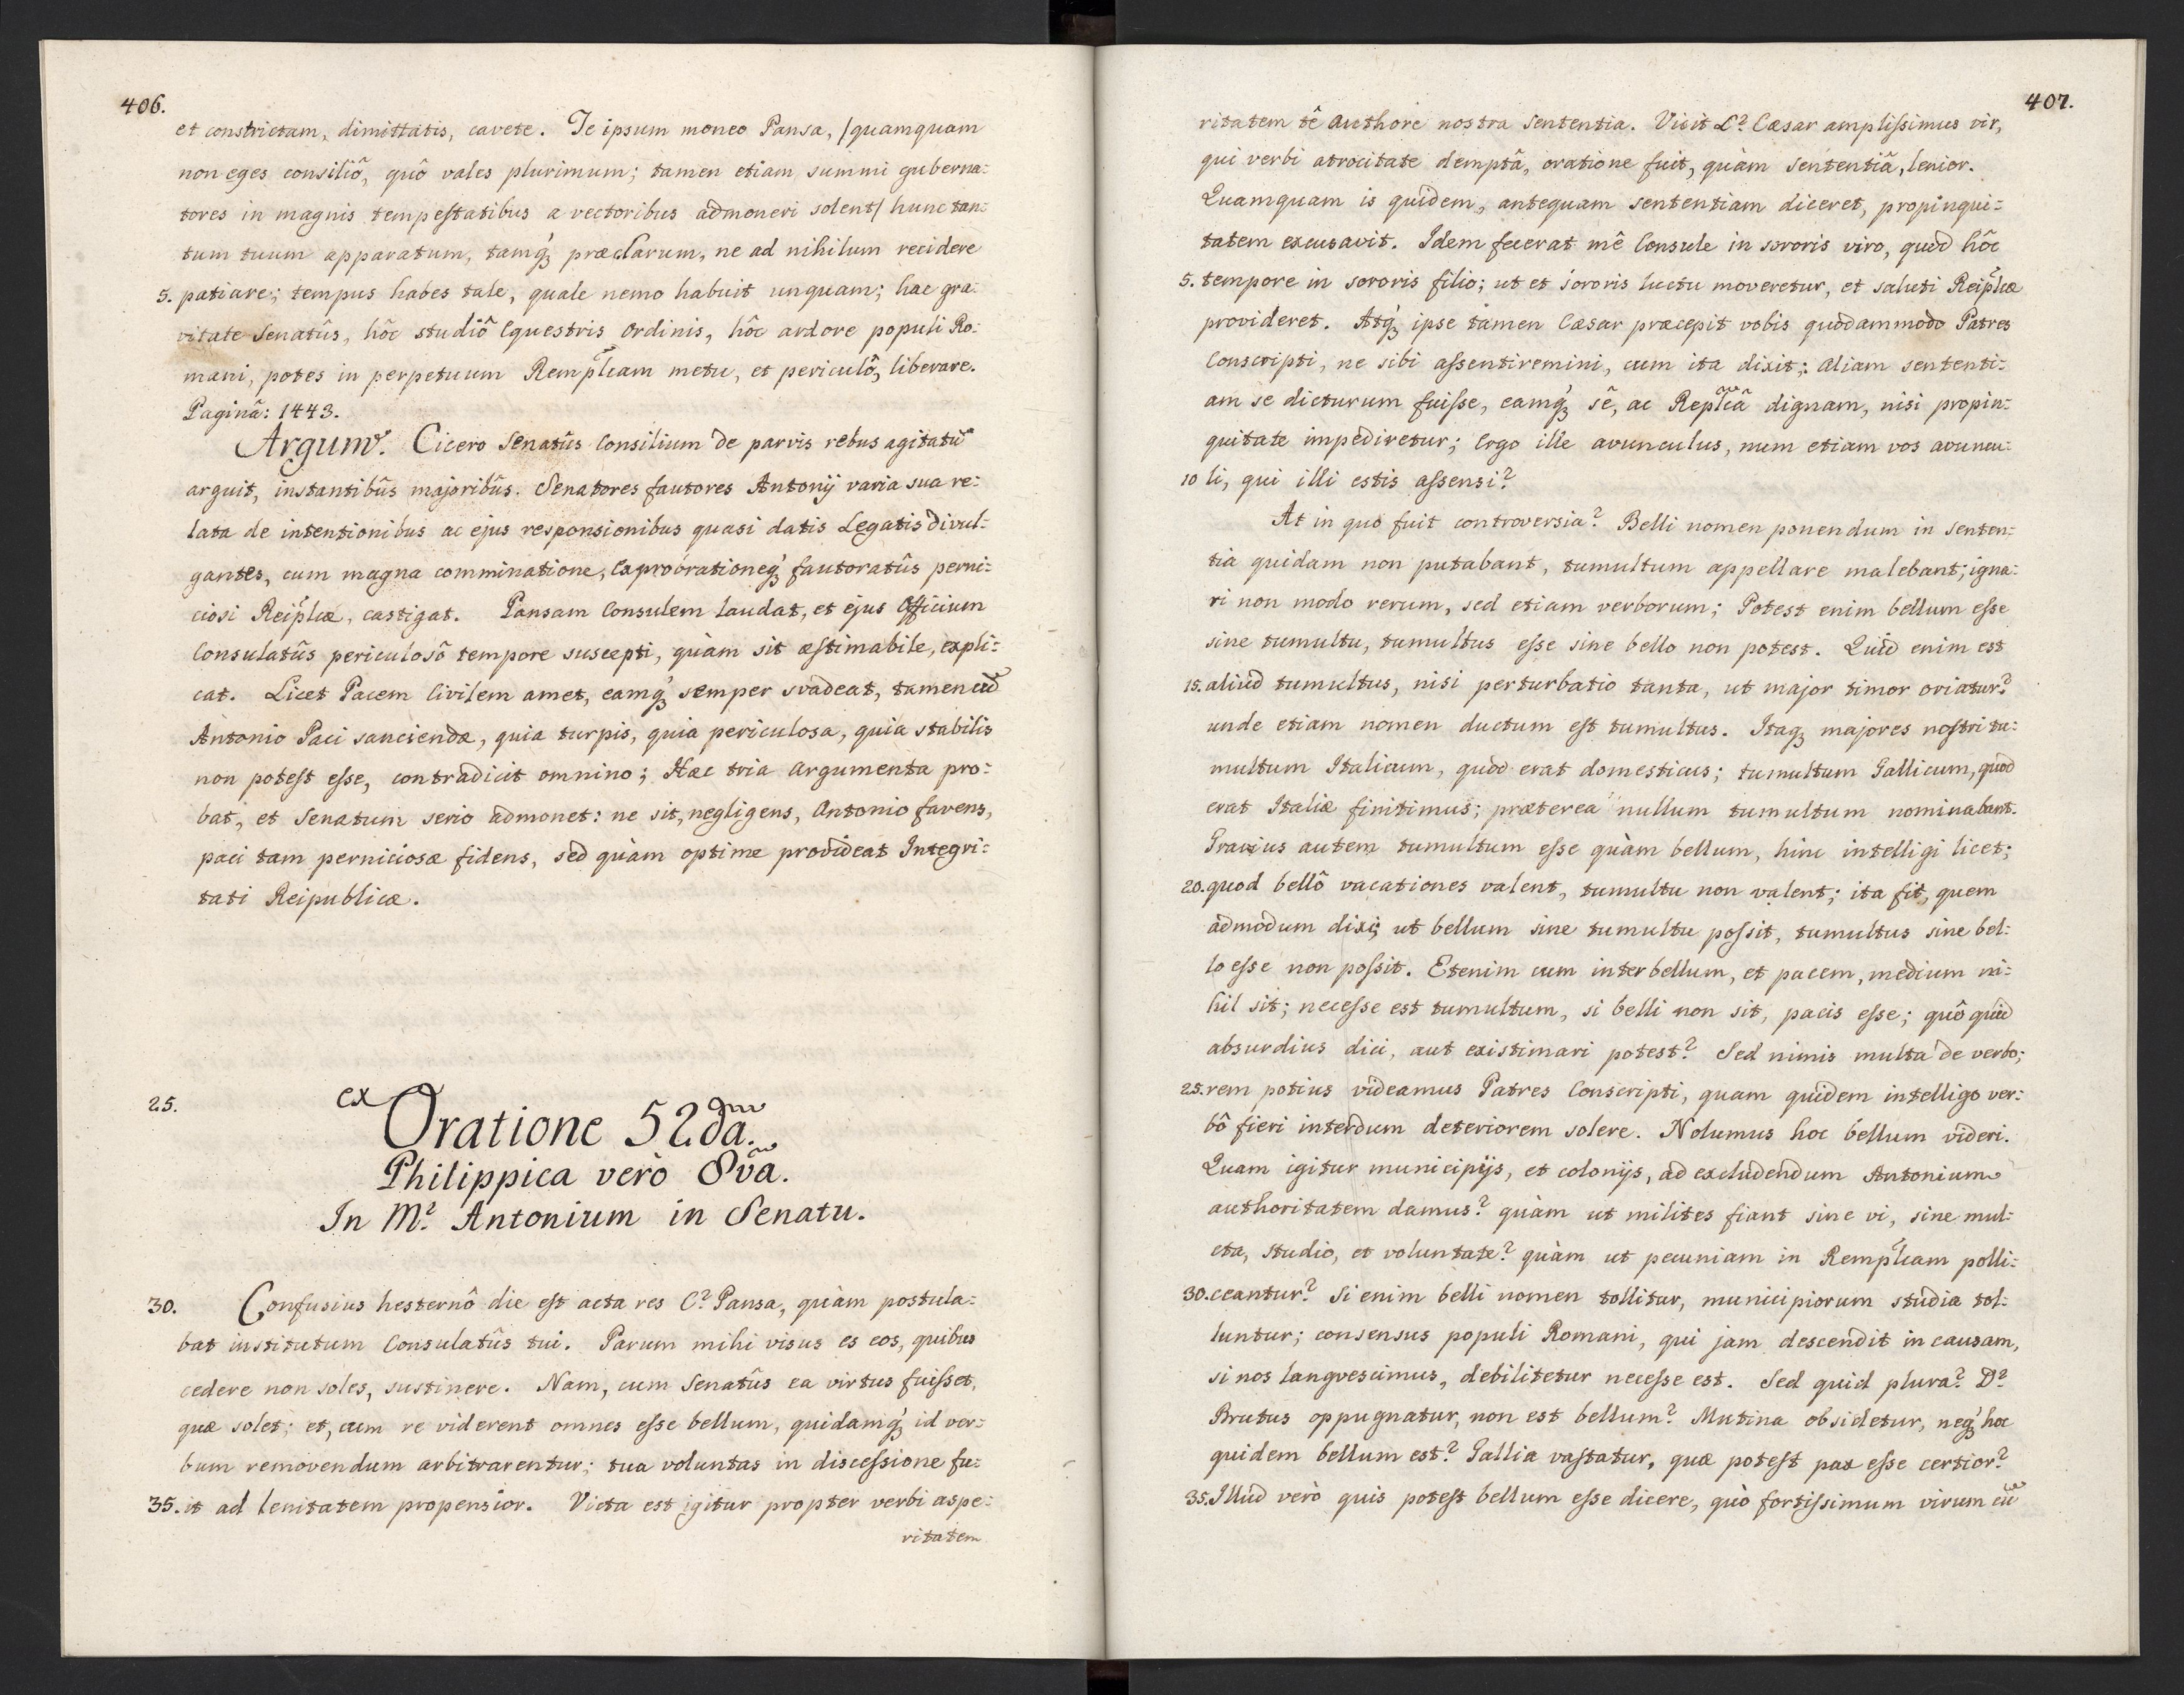 406.
et constrictam, dimittatis, cavete. Te ipsum moneo Pansa, /quamquam
non eges consiliô, quô vales plurimum; tamen etiam summi guberna:
tores in magnis tempestatibus a vectoribus admoneri solent/ hunc tan:
tum tuum apparatum, tamq́; præclarum, ne ad nihilum recidere
5. patiare; tempus habes tale, quale nemo habuit unquam; hac gra:
vitate Senatûs, hôc studiô Equestris Ordinis, hôc ardore populi Ro:
mani, potes in perpetuum Remplcam metu, et periculô, liberare.
Paginâ: 1443.
Argumt. Cicero Senatûs Consilium de parvis rebus agitatū
arguit, instantibûs majoribûs. Senatores fautores Antonij varia sua re:
lata de intentionibus ac ejus responsionibus quasi datis Legatis divul:
gantes, cum magna comminatione, Exprobrationeq́; fautoratûs perni:
ciosi Reiplcæ, castigat. Pansam Consulem laudat, et ejus Officium
Consulatûs periculosô tempore suscepti, quàm sit æstimabile, expli:
cat. Licet Pacem Civilem amet, eamq́; semper svadeat, tamen cū
Antonio Paci sanciendæ, quia turpis, quia periculosa, quia stabilis
non potest esse, contradicit omnino; Hæc tria Argumenta pro:
bat, et Senatum serio admonet: ne sit, negligens, Antonio favens,
paci tam perniciosæ fidens, sed quàm optime provideat Integri:
tati Reipublicæ.
25. ex Oratione 52dâ.
Philippica verò 8vâ.
In M? Antonium in Senatu.
30. Confusius hesternô die est acta res C? Pansa, quàm postula:
bat institutum Consulatûs tui. Parum mihi visus es eos, quibus
cedere non soles, sustinere. Nam, cum Senatûs ea virtus fuisset,
quæ solet; et, cum re viderent omnes esse bellum, quidamq́; id ver:
bum removendum arbitrarentur; tua voluntas in discessione fu:
35. it ad lenitatem propensior. Victa est igitur propter verbi aspe:
ritatem
407.
ritatem tê Authore nostra Sententia. Vicit L? Cæsar amplissimus vir,
qui verbi atrocitate demptâ, oratione fuit, quàm Sententiâ, lenior.
Quamquam is quidem, antequam sententiam diceret, propinqui:
tatem excusavit. Idem fecerat mê Consule in sororis viro, quod hôc
5. tempore in sororis filio; ut et sororis luctu moveretur, et saluti Reiplcæ
provideret. Atq́; ipse tamen Cæsar præcepit vobis quodammodo Patres
Conscripti, ne sibi assentiremini, cum ita dixit; Aliam sententi:
am se dicturum fuisse, eamq́; sê, ac Replcâ dignam, nisi propin:
quitate impediretur; Ergo ille avunculus, num etiam vos avuncu:
10 li, qui illi estis assensi?
At in quo fuit controversia? Belli nomen ponendum in Senten:
tia quidam non putabant, tumultum appellare malebant; igna:
ri non modo rerum, sed etiam verborum; Potest enim bellum esse
sine tumultu, tumultus esse sine bello non potest. Quid enim est
15. aliud tumultus, nisi perturbatio tanta, ut major timor oriatur?
unde etiam nomen ductum est tumultus. Itaq; majores nostri tu:
multum Italicum, quod erat domesticus; tumultum Gallicum, quod
erat Italiæ finitimus; præterea nullum tumultum nominabant.
Gravius autem tumultum esse quàm bellum, hinc intelligi licet;
20. quod bellô vacationes valent, tumultu non valent; ita fit, quem
admodum dixi; ut bellum sine tumultu possit, tumultus sine bel:
lo esse non possit. Etenim cum inter bellum, et pacem, medium ni:
hil sit; necesse est tumultum, si belli non sit, pacis esse; quô quid
absurdius dici, aut existimari potest? Sed nimis multa de verbo;
25. rem potius videamus Patres Conscripti, quam quidem intelligo ver:
bô fieri interdum deteriorem solere. Nolumus hoc bellum videri.
Quam igitur municipijs, et colonijs, ad excludendum Antonium
authoritatem damus? quàm ut milites fiant sine vi, sine mul:
cta, studio, et voluntate? quàm ut pecuniam in Remplcam polli:
30. ceantur? Si enim belli nomen tollitur, municipiorum studia tol:
luntur; consensus populi Romani, qui jam descendit in causam,
si nos langvescimus, debilitetur necesse est. Sed quid plura? D?
Brutus oppugnatur, non est bellum? Mutina obsidetur, neq́; hoc
quidem bellum est? Gallia vastatur, quæ potest pax esse certior?
35. Illud verò quis potest bellum esse dicere, quò fortissimum virum cū